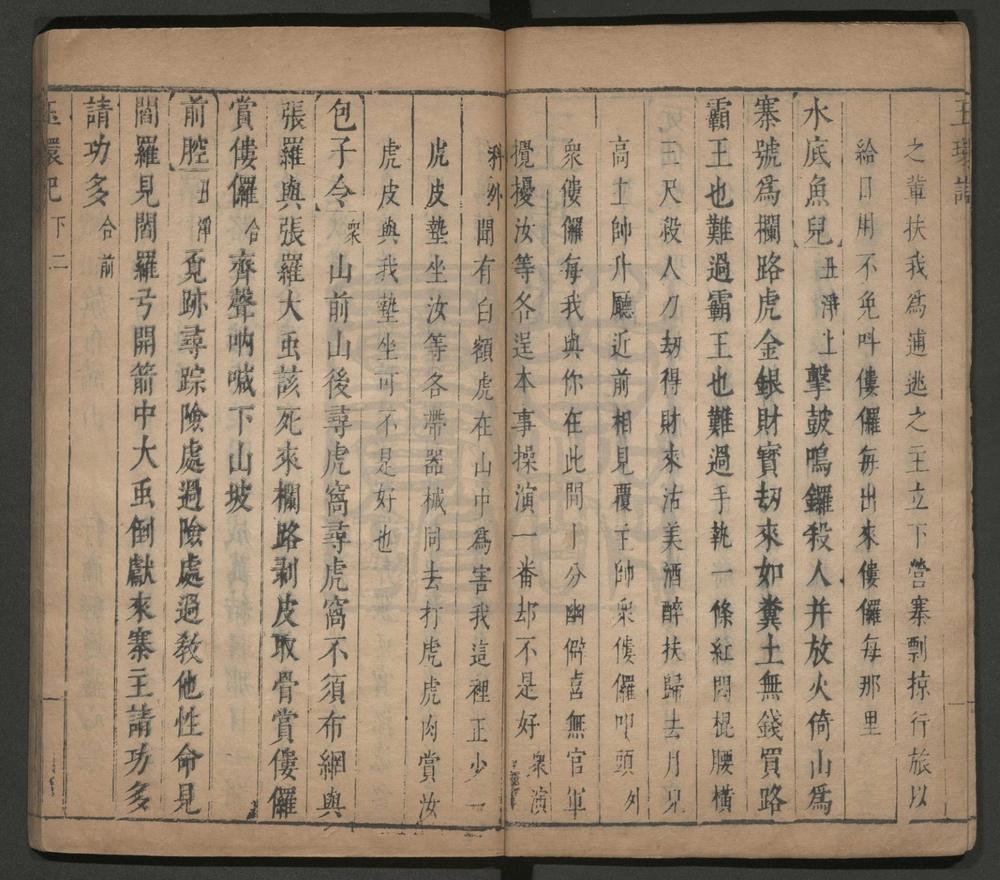 之輩扶我爲逋逃之主立下營寨剽掠行旅以
給日用不免呌僂儸每出來僂儸每那里
水底魚兒 丑淨上 擊鼓鳴鑼殺人并放火倚山爲
寨號爲攔路虎金銀財寶刼來如糞土無錢買路
霸王也難過霸王也難過手執一條紅悶棍腰橫
三尺殺人刀刼得財來沽美酒醉扶歸去月兒
高主帥升廳近前相見覆主帥衆僂儸叩頭 外
衆僂儸每我與你在此間十分幽僻喜無官軍
攪擾汝等各逞本事操演一番却不是好 衆演
科外 聞有白額虎在山中爲害我這裡正少一
虎皮墊坐汝等各帶器械同去打虎虎肉賞汝
虎皮與我墊坐可不是好也
包子令 衆 山前山後尋虎窩尋虎窩不須布網與
張羅與張羅大虫該死來攔路剥皮取骨賞僂儸
賞僂儸 合 齊聲吶喊下山坡
前腔 丑淨 覓跡尋踪險處過險處過敎他性命見
閻羅見閻羅弓開箭中大虫倒獻來寨主請功多
請功多 合前
玉環記 下 二